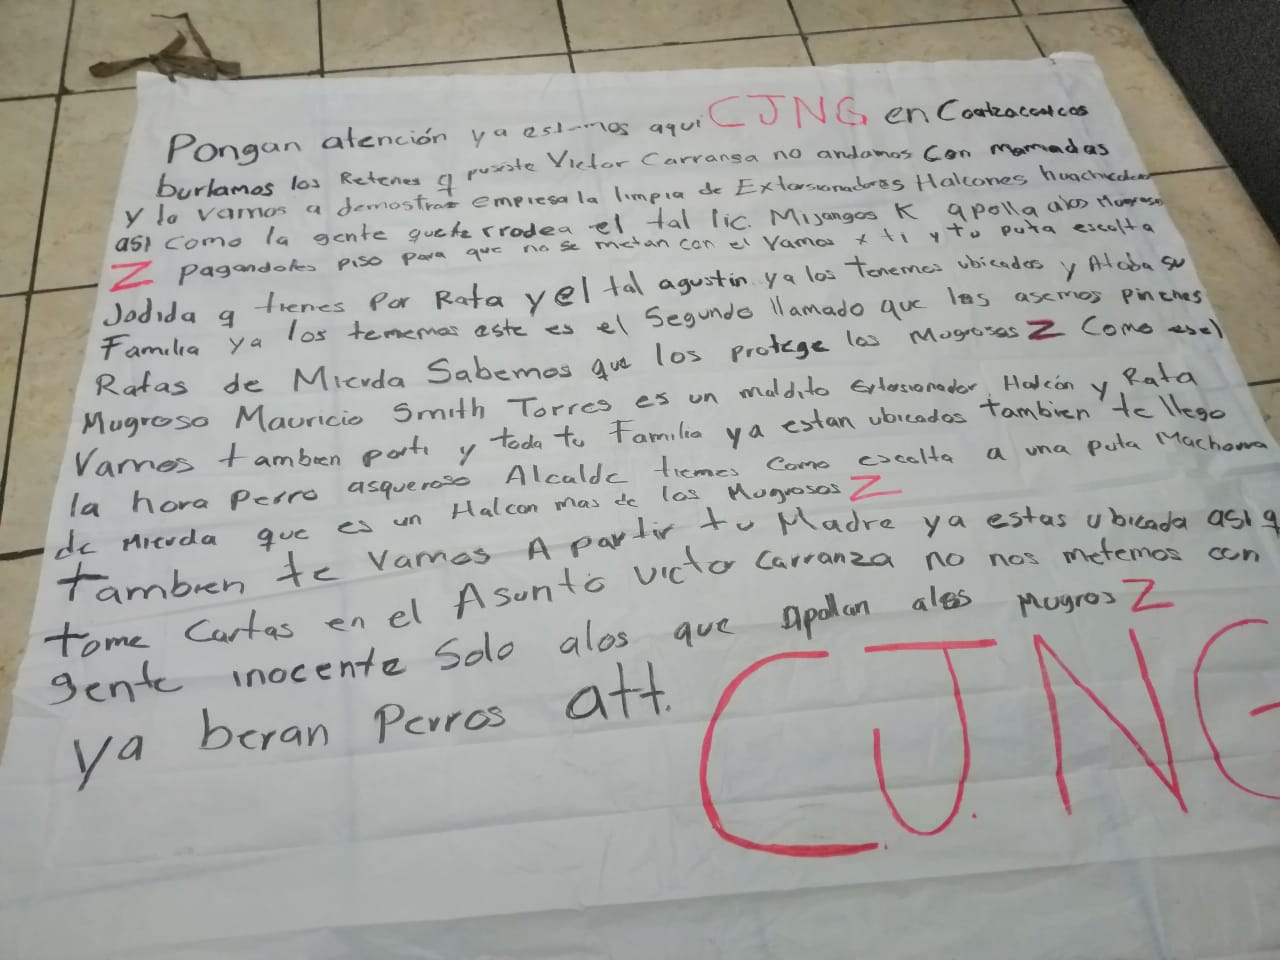 Pongan atención ya estamos aqui CJNG en Coatzacoalcos
burlamos los Retenes q pusiste Victor Carransa no andamos con mamadas
y lo vamos a demostrar empiesa la limpia de Extorsionadores Halcones
asi como la gente que te rrodea el tal lic. Mijangos K apolla alos Mugroso
Z pagandoles piso para que no se metan con el Vamos x ti y tu puta escolta
Jodida q tienes Por Rata y el tal agustin ya los tenemos ubicados y Atoba su
Familia ya los tememos este es el Segundo llamado que les asemos pinenes
Ratas de Mierda Sabemos que los protege los Mugrosos Z Como ese
Mugroso Mauricio Smith Torres es un maldito Extorsionador, Halcón y Rata
Vamos tambien porti y toda tu Familia ya estan ubicados tambien te llego
la hora Perro asqueroso Alcalde tiemes como escolta a una puta Machorra
de Mierda que es un Halcon mas de los Mugrosos Z
tambien te Vamos A partir tu Madre ya estas ubicada asi q
tome Cartas en el Asunto Victor Carranza no nos metemos con
gente inocente Solo alos que Apollan alos MugrosZ
ya beran Perros att.
CJNG